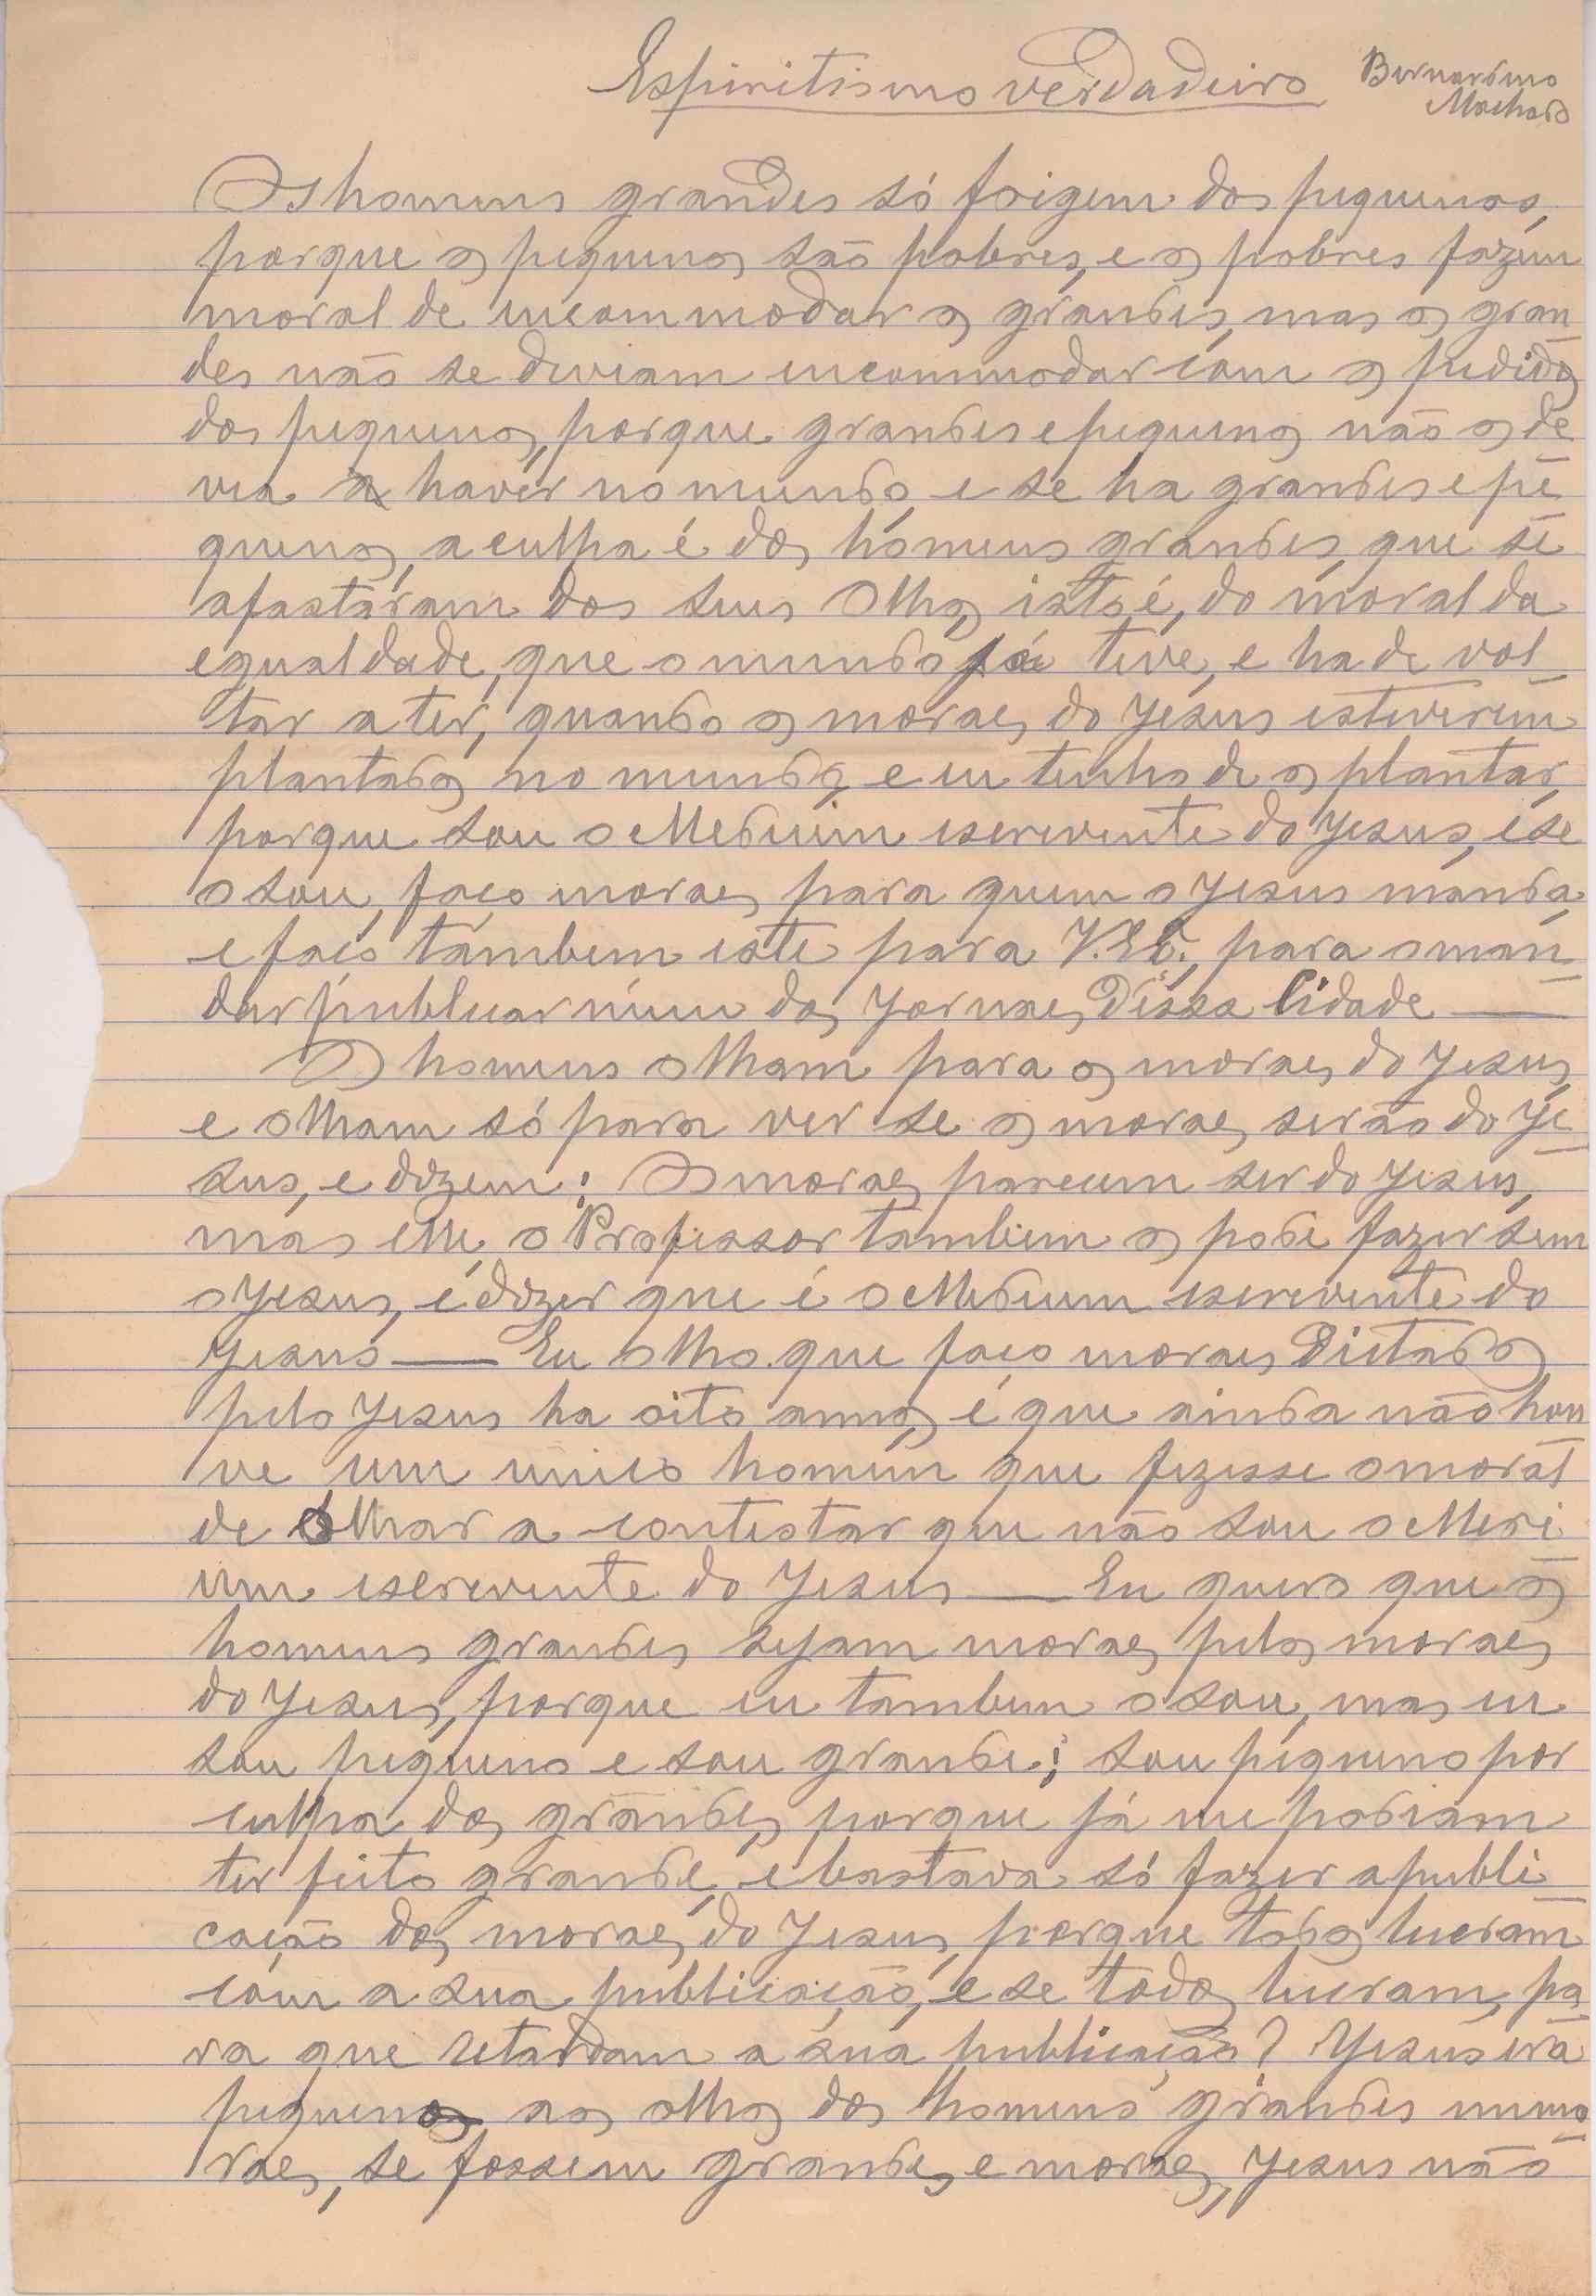 Espiritismo verdadeiro
Bernardino
Machado
Os homens grandes só foigem dos pequenos,
porque os pequenos são pobres, e os pobres fazem
moral de incommodar os grandes, mas os gran
des não se deviam incommodar com os pedidos
dos pequenos, porque grandes e pequenos não os de
via haver no mundo, e se ha grandes e pe
quenos, a culpa é dos homens grandes, que se
afastaram dos seus olhos, isto é, do moral da
egualdade, que o mundo já teve, e ha de vol
tar a ter, quando os moraes do Jesus estiverem
plantados no mundo, e eu tenho de os plantar,
porque sou o Medium escrevente do Jesus, e se
o sou, faço moraes para quem o Jesus manda,
e faço tambem este para V. Ex.ª, para o man
dar publicar n'um dos Jornaes Dessa Cidade —
Os homens olham para os moraes do Jesus,
e olham só para ver se os moraes serão do Je
sus, e dizem: Os moraes parecem ser do Jesus,
mas elle, o Professor tambem os pode fazer sem
o Jesus, e dizer que é o Medium escrevente do
Jesus — Eu olho que faço moraes Dictados
pelo Jesus ha oito annos, e que ainda não hou
ve um unico homem que fizesse o moral
de olhar a contestar que não sou o Medi
um escrevente do Jesus — Eu quero que os
homens grandes sejam moraes pelos moraes
do Jesus, porque eu tambem o sou, mas eu
sou pequeno e sou grande; sou pequeno por
culpa dos grandes, porque já me podiam
ter feito grande, e bastava só fazer a publi
cação dos moraes do Jesus, porque todos lucram
com a sua publicação, e se todos lucram, pa
ra que retardam a sua publicação? Jesus era
pequeno aos olhos dos homens grandes immo
raes, se fossem grandes e moraes, Jesus não